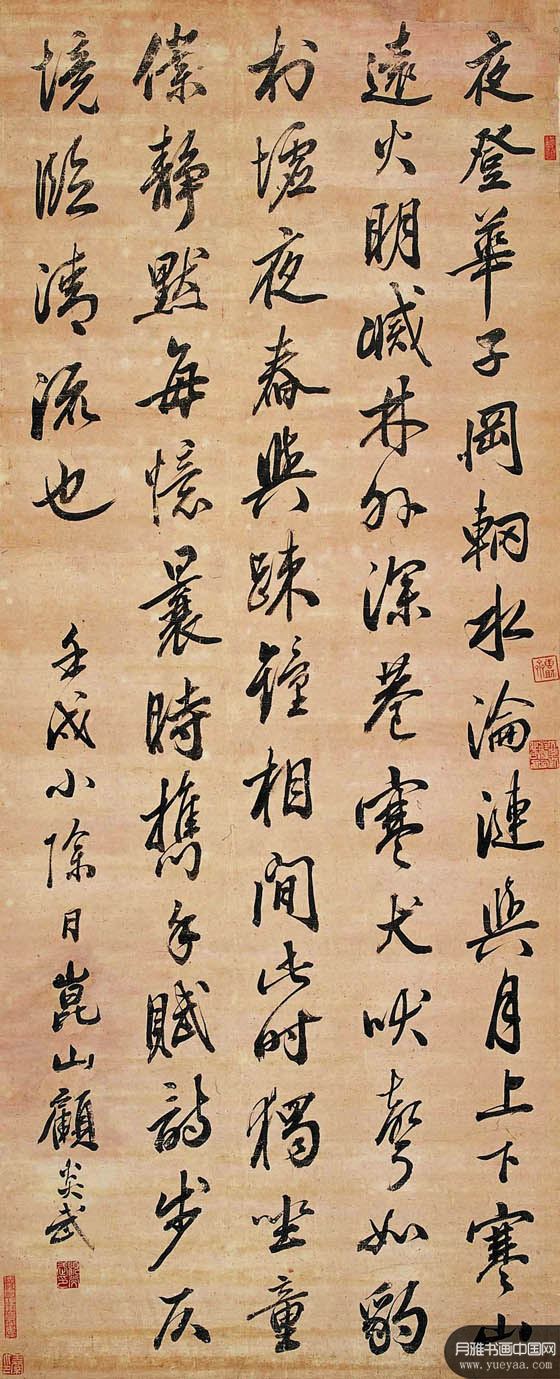 夜登華子岡輞水淪漣與月上下寒山
遠火明滅林外深巷寒犬吠聲如豹
村墟夜舂與疎鐘相間此时獨坐童
僕靜默每憶曩時攜手賦詩步仄
境臨清流也
壬戌小除日崑山顧炎武
月雅书画中国网
www.yueyaa.com